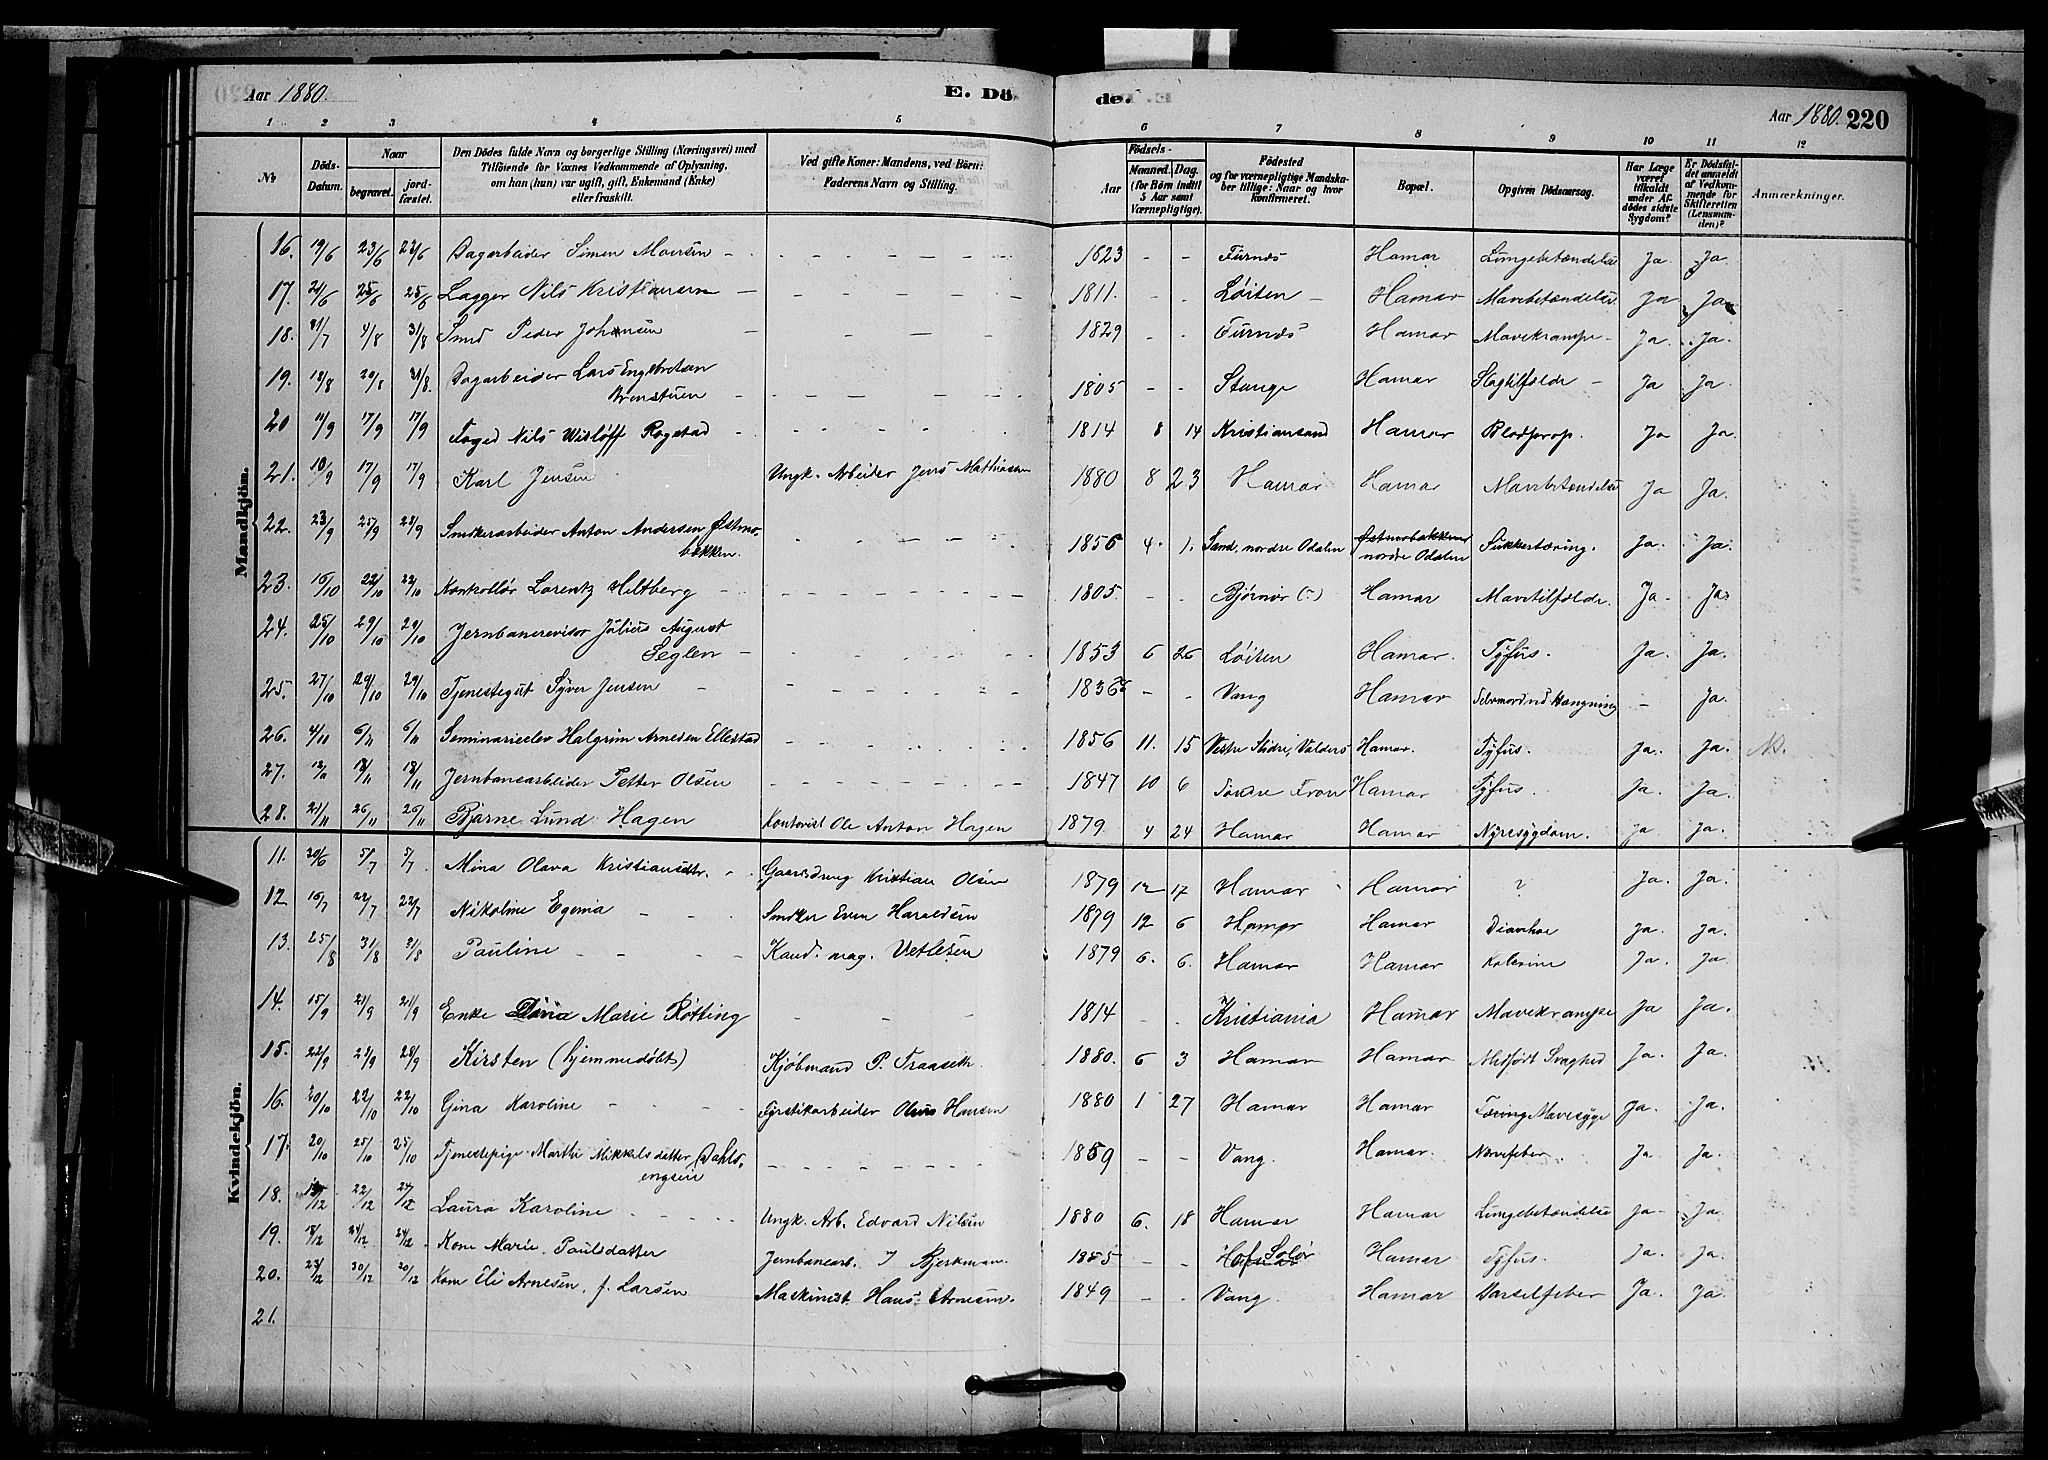 Aar 1880. E. Dö de. Aar 1880. 220
1 2 3 4 5 6 7 8 9 10 11 12
№ Döds-Datum. Naar begravet. jordfæstet. Den Dödes fulde Navn og borgerlige Stilling (Næringsvei) med Tilföiende for Voxnes Vedkommende af Oplysning, om han (hun) var ugift, gift, Enkemand (Enke) eller fraskilt. Ved gifte Koner: Mandens, ved Börn: Faderens Navn og Stilling. Födsels- Aar Maaned. Dag. (for Börn indtil 5 Aar samt Værnepligtige). Födested og for værnepligtige Mandskaber tillige: Naar og hvor konfirmeret. Bopæl. Opgiven Dödsaarsag. Har Læge været tilkaldt under Afdödes sidste Sygdom? Er Dödsfaldet anmeldt af Vedkommende for Skifteretten (Lensmanden)? Anmærkninger.
Mandkjön.
16. 19/6 23/6 23/6 Dagarbeider Simen Monsen - - - 1823 - - Furnes Hamar Lungebetændelse Ja. Ja.
17. 21/6 25/6 25/6 Lagger Nils Kristiansen - - - 1811. - - Løiten Hamar Mavebetændelse Ja Ja
18. 31/7 4/8 31/8 Smed Peder Johansen - - - 1829 - - Furnes Hamar Mavekrampe Ja. Ja.
19. 18/8 20/8 31/8 Dagarbeider Lars Engebretsen
- - - 1805 - - Stange Hamar Slagtilfælde Ja Ja.
20 11/9 17/9 17/9 Foged Nils Wisløff Rogstad - - - 1814 8 14 Kristiansand Hamar Blodprop. Ja Ja.
21. 10/9 17/9 17/9 Karl Jensen Ungk. Arbeider Jens Mathiasen 1880 8 23 Hamar Hamar Mavebetændelse Ja Ja.
22. 23/9 25/9 28/9 Snekkerarbeider Anton Andersen Østmo-
bakken. - - - 1856 4. 1. Sand, nordre Odalen Østmobakken nordre Odalen Sukkertæring. Ja. Ja.
23. 16/10 22/10 22/10 Kontrollør Lorentz Hiltberg - - - 1805 - - Bjørnør (?) Hamar Mavetilfælde. Ja Ja.
24. 25/10 29/10 29/10 Jernbanerevisor Julius August
Seglen - - - 1853 6 26 Løiten Hamar. Tyfus. Ja. Ja.
25. 27/10 29/10 29/10 Tjenestegut Syver Jensen - - - 1836 - - Vang Hamar Selvmord ved Hængning - Ja.
26. 4/11 6/11 6/11 Seminarieelev Halgrim Arnesen Ellestad - - - 1856 11. 15 Vestre Slidre, Valders Hamar. Tyfus. Ja. Ja. NB.
27. 12/11 18/11 18/11 Jernbanearbeider Petter Olsen - - - 1847 10 6 Søndre Fron Hamar Tyfus. Ja. Ja.
28. 21/11 26/11 26/11 Bjarne Lund Hagen Kontorist Ole Anton Hagen 1879 4 24 Hamar Hamar Nyresygdom. Ja Ja.
Kvindekjön.
11. 30/6 5/7 5/7 Mina Olava Kristiansdtr. Gaardsdreng Kristian Olsen 1879 12 17 Hamar Hamar ? Ja. Ja.
12 16/7 22/7 22/7 Nikoline Egenia - - Snekker Even Haraldsen 1879 12 6 Hamar Hamar Diarrhoe Ja. Ja.
13. 25/8 31/8 31/8 Pauline - - - Kand. mag. Vetlesen 1879 6. 6. Hamar Hamar Kolerine Ja. Ja.
14. 15/9 21/9 21/9 Enke Marie Røtting - - - 1814 - - Kristiania Hamar Mavekrampe Ja Ja.
15. 22/9 28/9 28/9 Kirsten (hjemmedøbt) Kjøbmand P. Fraaseth 1880. 6 3 Hamar Hamar Medfødt Svaghed Ja. Ja.
16. 20/10 22/10 22/10 Gina Karoline - - - Fyrstikarbeider Olaus Hansen 1880 1 27 Hamar Hamar Tæring Mavesyge Ja. Ja.
17. 20/10 25/10 25/10 Tjenestepige Marthe Mikkelsdatter Dahls-
engen - - - 1859 - - Vang. Hamar. Nervefeber. Ja Ja.
18. 15/12 22/12 24/12 Laura Karoline - - - Ungk. Arb. Edvard Nilsen 1880 6. 18 Hamar Hamar Lungebetændelse Ja. Ja.
19. 18/12 24/12 24/12 Kone Marie Paulsdatter Jernbanearb. J Bjerkman. 1855 - - Hof Solør Hamar Tyfus. Ja. Ja.
20. 23/12 30/12 30/12 Kone Eli Arnesen, f. Larsen Maskinist Hans Arnesen. 1849 - - Vang. Hamar Barselfeber Ja. Ja.
21.